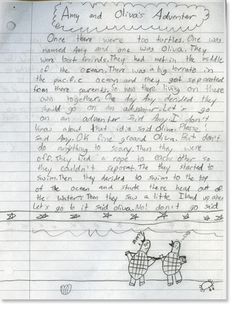 Amy and Oliva's Adventer
Once there were too turtles. One was
named Amy and one was Oliva. They
were both freinds. They had met in the middle
of the ocean. There was a big tornato in
the pacific ocean and they got seperated
from there parents. So now there living on there
own together. One day Amy decided they
should go on an adventer. Let's go
on an adventer said Amy. I don't
know about that idea said Oliva. Please
said Amy. OK fine ground Oliva. But don't
do anything to scary. Then they were
off. They tied a rope to each other so
they couldn't seperat. The they started to
swim. Then they decided to swim to the top
of the ocean and stuck there head out of
the water. Then they saw a little Iland up ahed
Let's go to it said oliva. No! don't go said